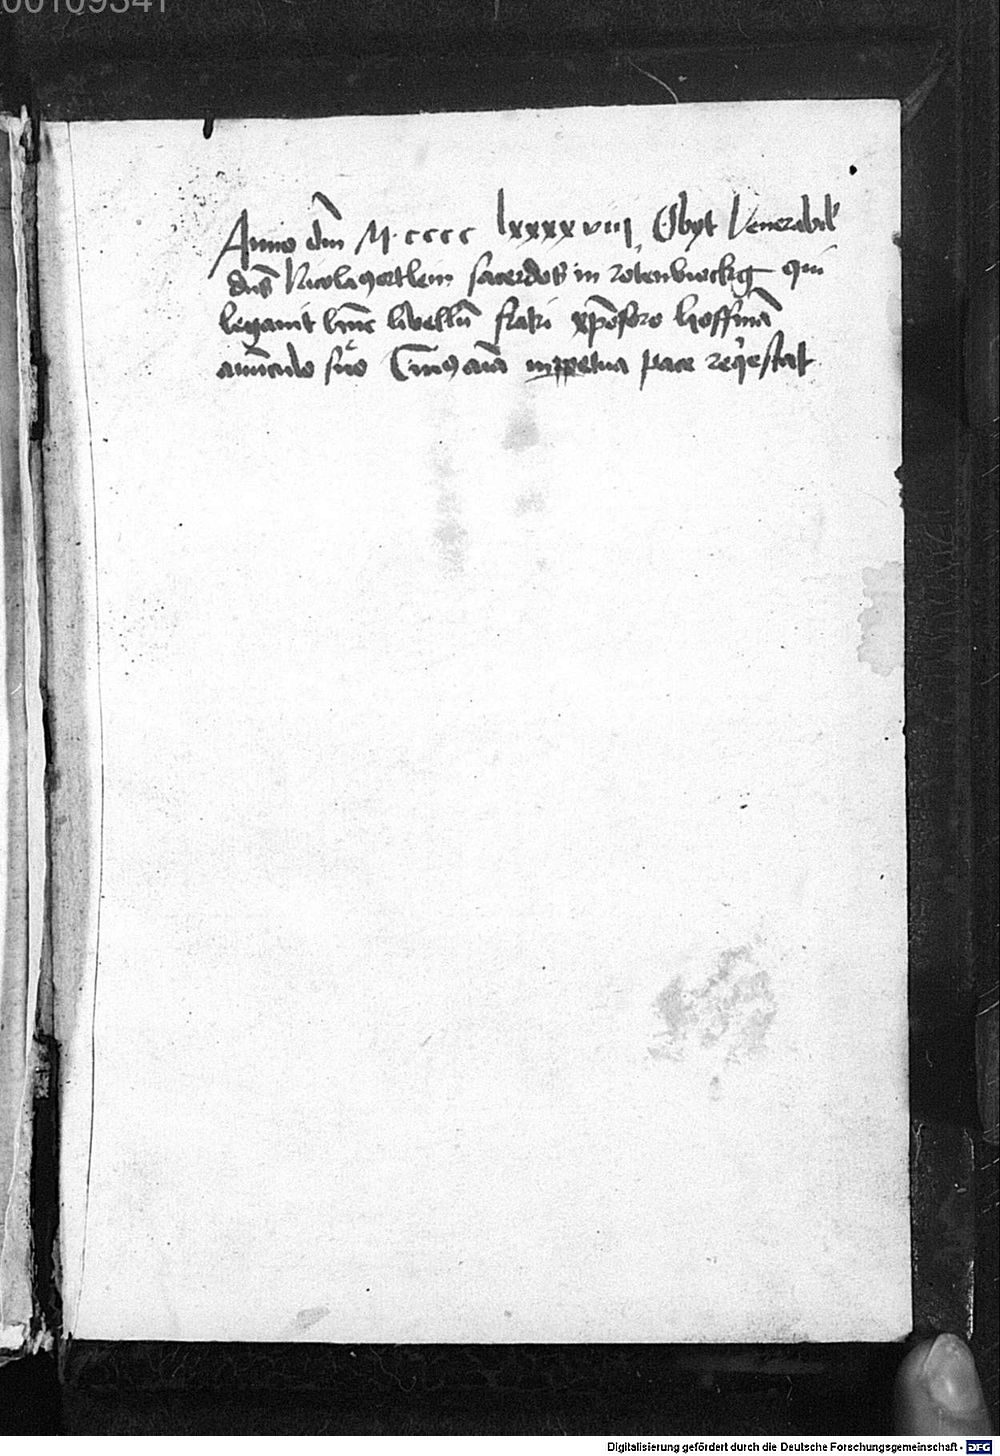 00109341
Anno dm̄ M cccc lxxxxviij Obyt Venerabil̕
dn̄s Nicolaꝰ ortlein sacerdos in rotenburckg qui
legauit hūc libellū fratri xp̄oforo hoffmā
auūculo suo Cuiꝰ aīa in ꝑpetua pace reqͥestat
Digitalisierung gefördert durch die Deutsche Forschungsgemeinschaft - DFG